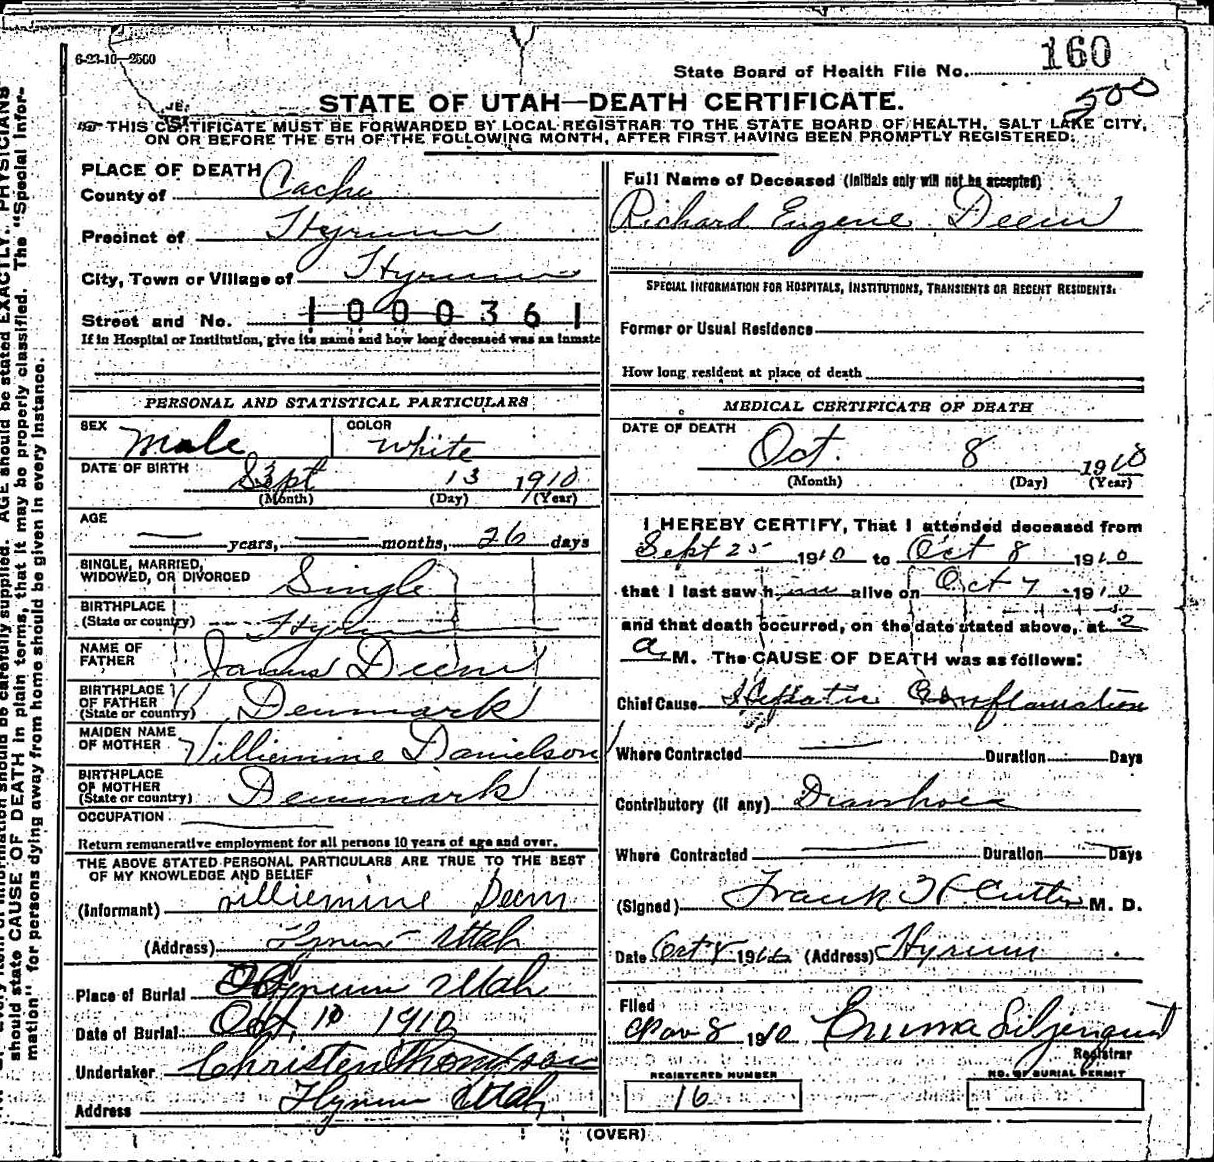 6-23-10—2500
State Board of Health File No. 160
500
STATE OF UTAH—DEATH CERTIFICATE.
THIS CERTIFICATE MUST BE FORWARDED BY LOCAL REGISTRAR TO THE STATE BOARD OF HEALTH, SALT LAKE CITY,
ON OR BEFORE THE 5TH OF THE FOLLOWING MONTH, AFTER FIRST HAVING BEEN PROMPTLY REGISTERED.
PLACE OF DEATH
County of Cache
Precinct of Hyrum
City, Town or Village of Hyrum
Street and No. 1000361
If in Hospital or Institution, give its name and how long deceased was an inmate
Full Name of Deceased (Initials only will not be accepted)
Richard Eugene Deem
SPECIAL INFORMATION FOR HOSPITALS, INSTITUTIONS, TRANSIENTS OR RECENT RESIDENTS:
Former or Usual Residence
How long resident at place of death
PERSONAL AND STATISTICAL PARTICULARS
SEX Male COLOR White
DATE OF BIRTH Sept 13 1910
(Month) (Day) (Year)
AGE
years, months, 26 days
SINGLE, MARRIED,
WIDOWED, OR DIVORCED Single
BIRTHPLACE
(State or country) Hyrum
NAME OF
FATHER James Deem
BIRTHPLACE
OF FATHER
(State or country) Denmark
MAIDEN NAME
OF MOTHER Villiemine Danielson
BIRTHPLACE
OF MOTHER
(State or country) Denmark
OCCUPATION
Return remunerative employment for all persons 10 years of age and over.
THE ABOVE STATED PERSONAL PARTICULARS ARE TRUE TO THE BEST
OF MY KNOWLEDGE AND BELIEF
(Informant) Villiemine Deem
(Address) Hyrum Utah
Place of Burial Hyrum Utah
Date of Burial Oct 10 1910
Undertaker Christen Thompson
Address Hyrum Utah
MEDICAL CERTIFICATE OF DEATH
DATE OF DEATH
Oct. 8 1910
(Month) (Day) (Year)
I HEREBY CERTIFY, That I attended deceased from
Sept 25 1910 to Oct 8 1910
that I last saw him alive on Oct 7 1910
and that death occurred, on the date stated above, at 2
a M. The CAUSE OF DEATH was as follows:
Chief Cause Hepatic Conflamation
Where Contracted Duration Days
Contributory (if any) Diarrhoea
Where Contracted Duration Days
(Signed) Frank H Cutler M. D.
Date Oct 8 1910 (Address) Hyrum
Filed
Nov 8 1910 Emma Liljenquist
Registrar
REGISTERED NUMBER NO. OF BURIAL PERMIT
16
(OVER)
should state CAUSE OF DEATH in plain terms, that it may be properly classified. The "Special Infor-
mation" for persons dying away from home should be given in every instance.